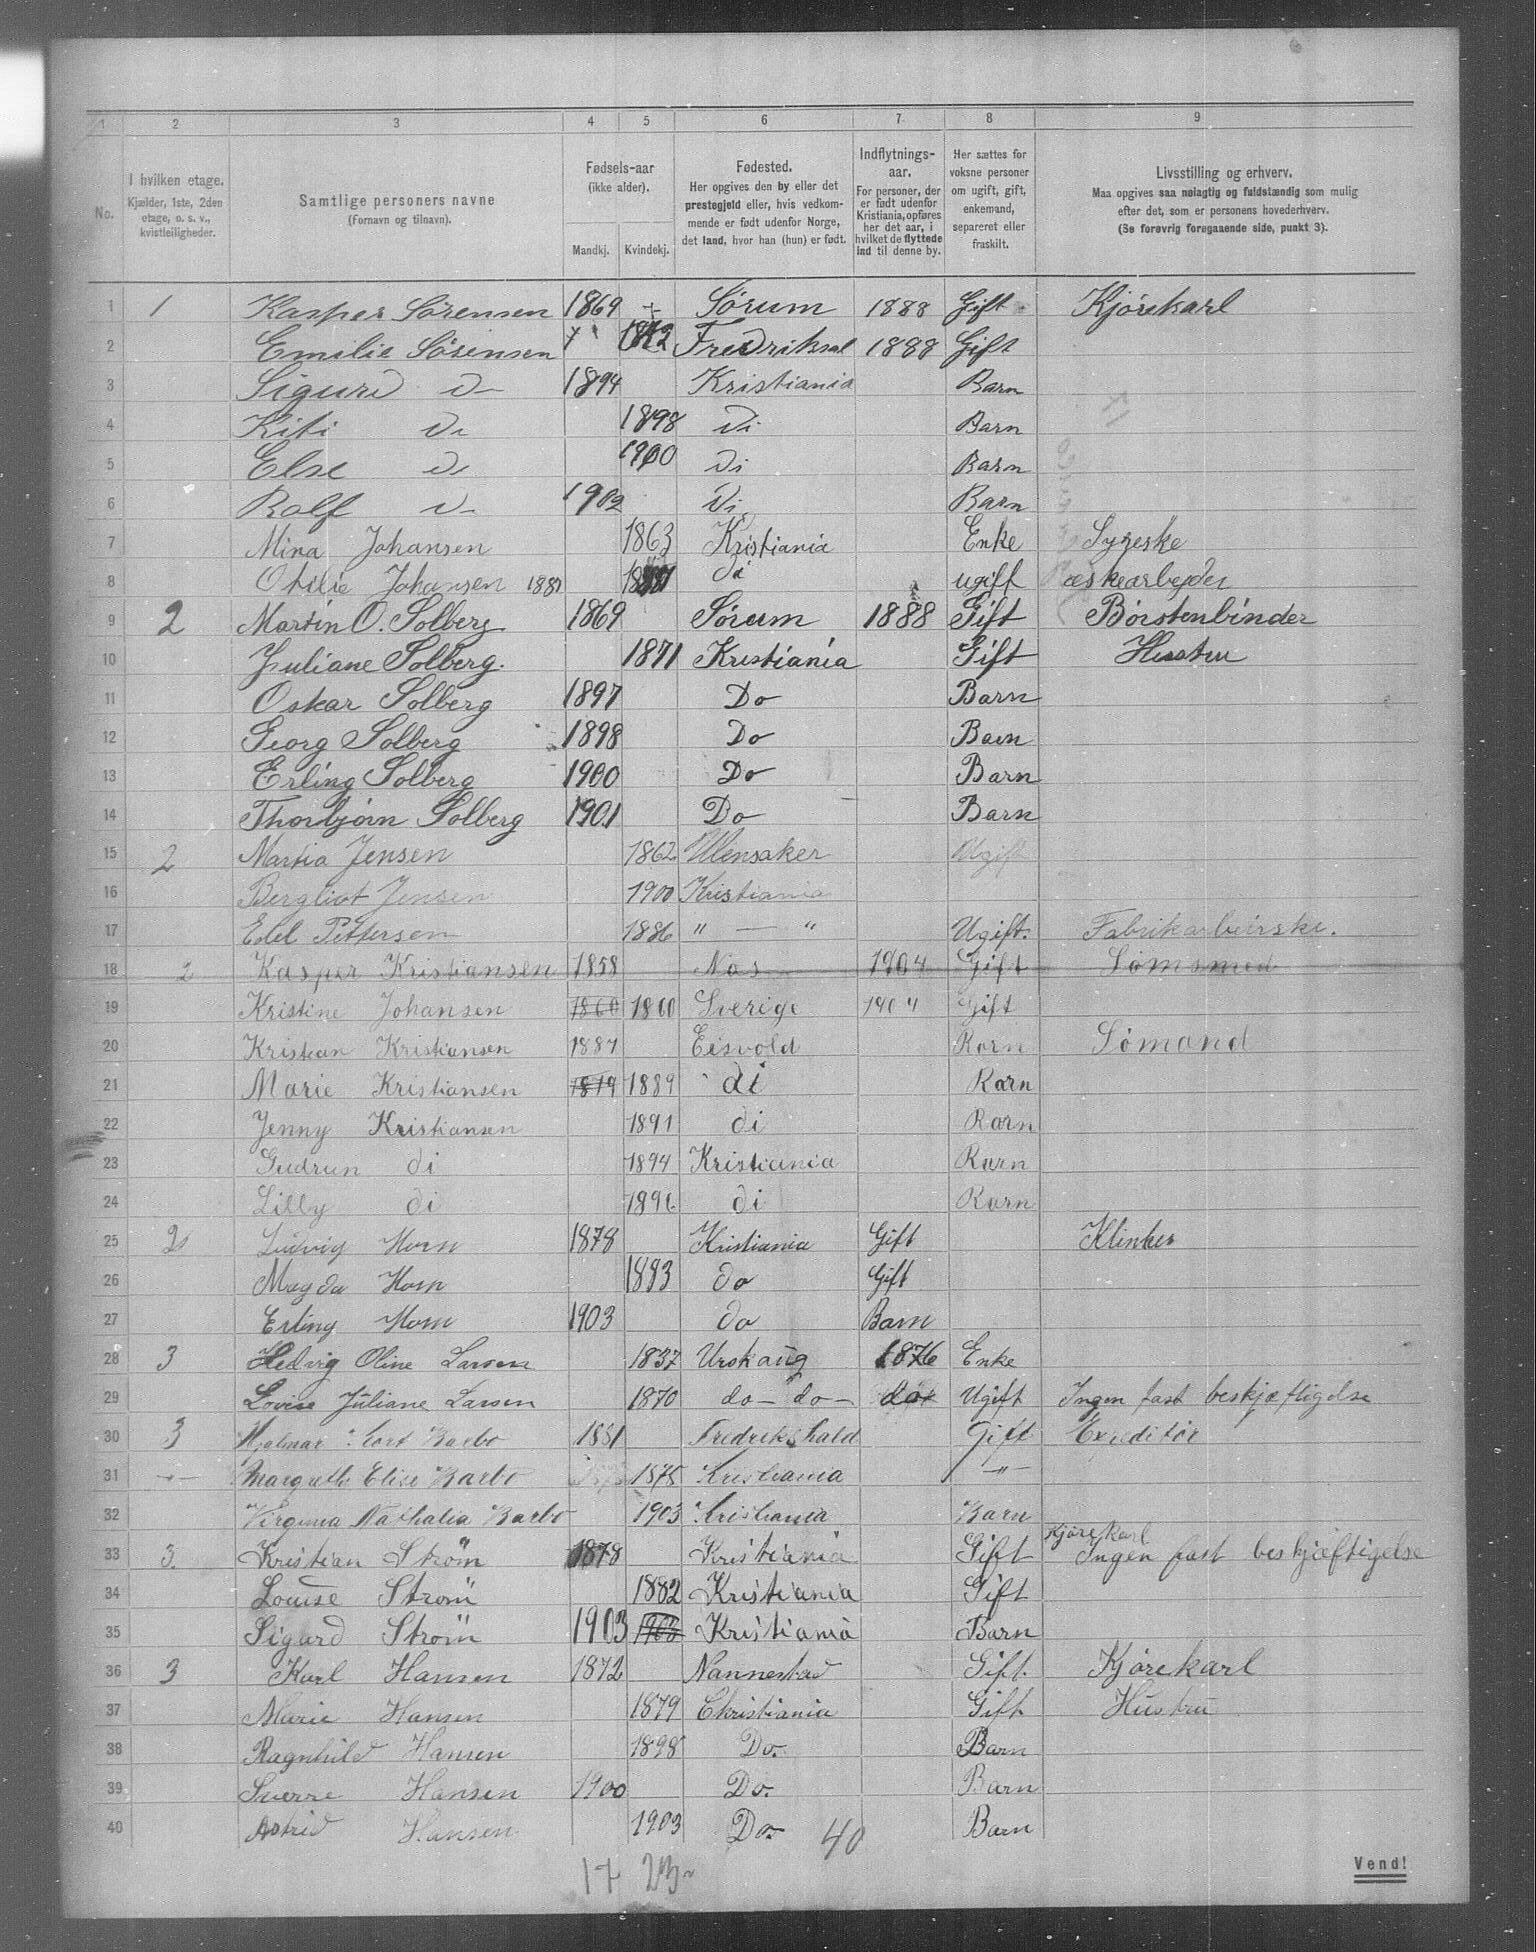 1 2 3 4 5 6 7 8 9
No.
I hvilken etage.
Kjælder, 1ste, 2den
etage, o. s. v.,
kvistleiligheder.
Samtlige personers navne
(fornavn og tilnavn).
Fødsels-aar
(ikke alder).
Mandkj. Kvindekj.
Fødested.
Her opgives den by eller det
prestegjeld eller, hvis vedkom-
mende er født udenfor Norge,
det land, hvor han (hun) er født.
Indflytnings-
aar.
For personer, der
er født udenfor
Kristiania, opføres
her det aar, i
hvilket de flyttede
ind til denne by.
Her sættes for
voksne personer
om ugift, gift,
enkemand,
separeret eller
fraskilt.
Livsstilling og erhverv.
Maa opgives saa nøiagtig og fuldstændig som mulig
efter det, som er personens hovederhverv.
(Se forøvrig foregaaende side, punkt 3).
1 1 Kasper Sørensen 1869 Sørum 1888 Gift Kjørekarl
2 Emilie Sørensen 1882 Fredriksal 1888 Gift
3 Sigurd d- 1894 Kristiania Barn
4 Kiti d- 1898 di Barn
5 Else d- 1900 di Barn
6 Rolf d- 1902 di Barn
7 Mina Johansen 1863 Kristiania Enke Syrske
8 Otilie Johansen 1887 di ugift æskearbejder
9 2 Martin O. Solberg 1869 Sørum 1888 Gift Børstenbinder
10 Juliane Solberg. 1871 Kristiania Gift Hustru
11 Oskar Solberg 1897 Do Barn
12 Georg Solberg 1898 Do Barn
13 Erling Solberg 1900 Do Barn
14 Thorbjørn Solberg 1901 Do Barn
15 2 Martia Jensen 1862 Ullensaker Ugift
16 Bergliot Jensen 1900 Kristiania
17 Edel Pettersen 1886 " — " Ugift. Fabrikarbeirske.
18 2 Kasper Kristiansen 1858 Nas 1904 Gift Sømsmed
19 Kristine Johansen 1860 1860 Sverige 1904 Gift
20 Kristian Kristiansen 1887 Eisvold Barn Sømand
21 Marie Kristiansen 1879 1889 di Barn
22 Jenny Kristiansen 1891 di Barn
23 Gudrun di 1894 Kristiania Barn
24 Lilly di 1896 di Barn
25 2 Ludvig Horn 1878 Kristiania Gift Klinker
26 Magda Horn 1883 do Gift
27 Erling Horn 1903 do Barn
28 3 Hedvig Oline Larsen 1837 Urskaug 1876 Enke
29 Lovise Juliane Larsen 1870 do - do - do Ugift Ingen fast beskjæftigelse
30 3 Hjalmar Cort Barbo 1881 Fredrikshald Gift Expeditør
31 Margrethe Elise Barbo 1875 Kristiania -"-
32 Virginia Nathalia Barbo 1903 Kristiania Barn
33 3. Kristian Strøm 1878 Kristiania Gift Kjørekarl Ingen fast beskjæftigelse
34 Louise Strøm 1882 Kristiania Gift
35 Sigurd Strøm 1903 Kristiania Barn
36 3 Karl Hansen 1872 Nannestad Gift. Kjørekarl
37 Marie Hansen 1879 Christiania Gift Hustru
38 Ragnhild Hansen 1898 Do. Barn
39 Sverre Hansen 1900 Do. Barn
40 Astrid Hansen 1903 Do. Barn
17 23 40
Vend!